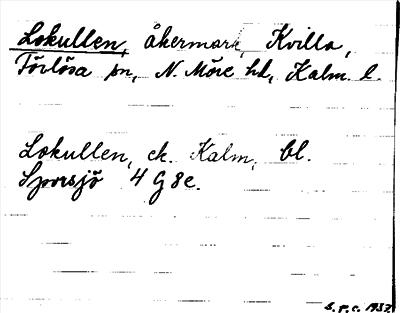 Lokullen, åkermark, Kvilla,
Förlösa sn, N. Möre hd, Kalm. l.
Lokullen, ek. Kalm, bl.
Sporsjö 4 G 8e.
S.P.C. 1937.